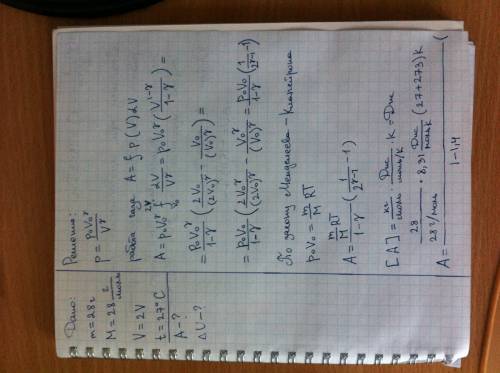 Дано:
m = 28 г
M = 28 г/моль
V = 2V
t = 27°C
A - ?
ΔU - ?
Решение:
P = P₀V₀^γ / V^γ
работа газа A = ∫ P(V) dV
A = P₀V₀^γ ∫_{V₀}^{2V} dV/V^γ = P₀V₀^γ (V^{1-γ} / 1-γ) =
= P₀V₀^γ / 1-γ (2V₀/(2V₀)^γ - V₀/(V₀)^γ) =
= P₀V₀ / 1-γ (2V₀/(2V₀)^γ - V₀^γ/(V₀)^γ) = P₀V₀/1-γ (1/2^{γ-1} - 1)
По закону Менделеева - Клапейрона
P₀V₀ = m/M RT
A = m/M RT / 1-γ - (1/2^{γ-1} - 1)
[A] = кг/моль · Дж/моль/К · К = Дж
A = 28 / 28 г/моль · 8,31 Дж/моль К (27+273) К / 1-1,4 (